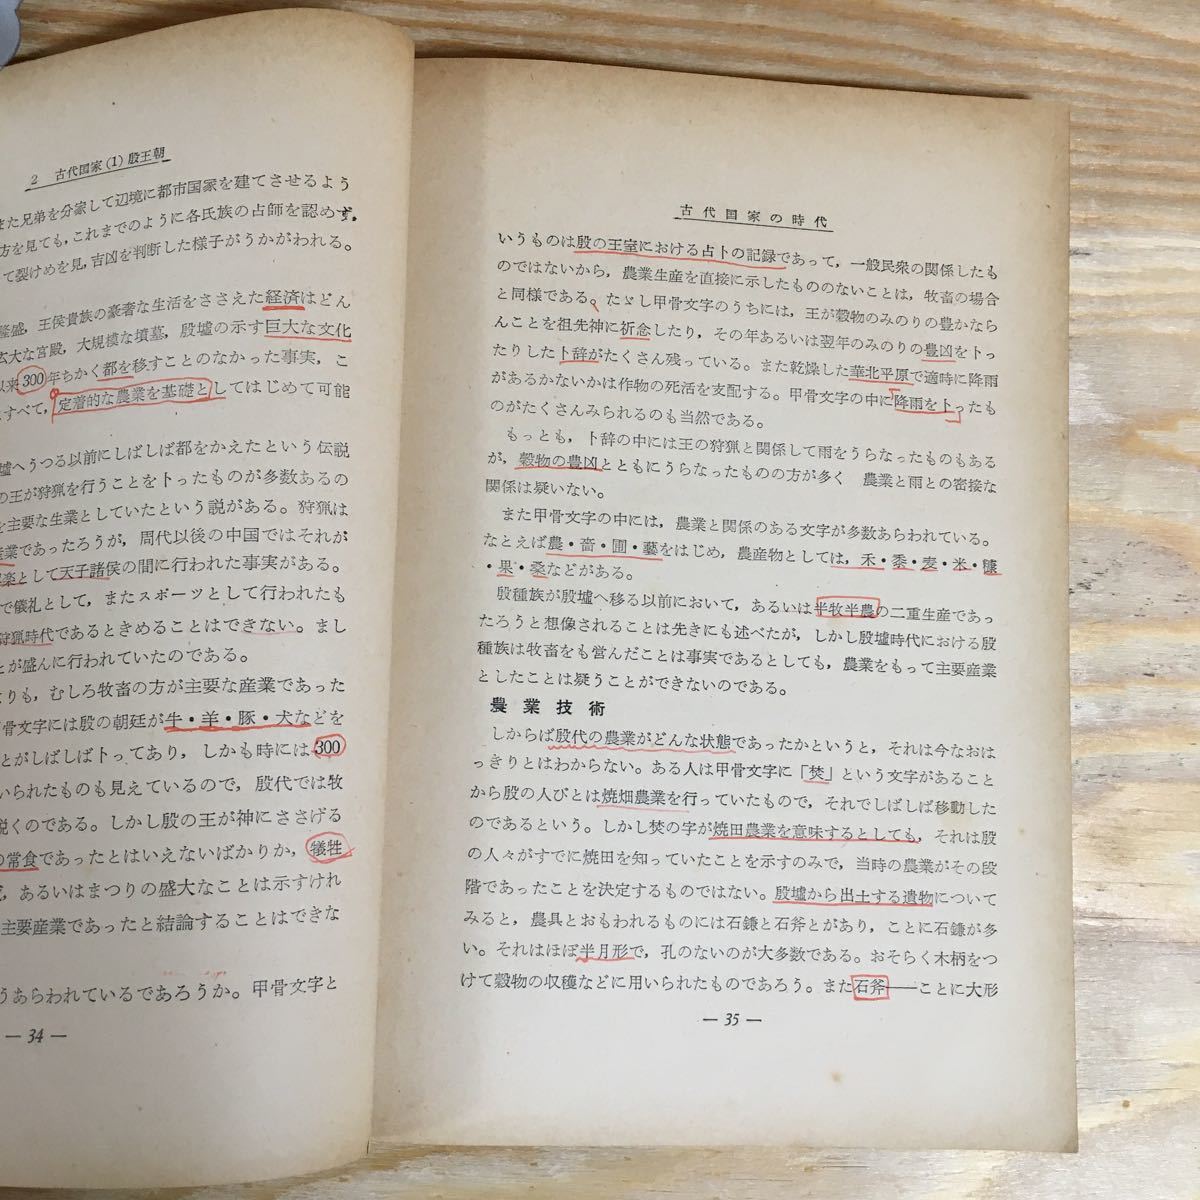 2 古代国家(1)殷王朝
また兄弟を分家して辺境に都市国家を建てさせるよう
方を見ても，これまでのように各氏族の占師を認めず，
て裂けめを見，吉凶を判断した様子がうかがわれる。
隆盛，王侯貴族の豪奢な生活をささえた経済はどん
広大な宮殿，大規模な墳墓，殷墟の示す巨大な文化
以来300年ちかく都を移すことのなかった事実，こ
すべて，定着的な農業を基礎としてはじめて可能
墟へうつる以前にしばしば都をかえたという伝説
の王が狩猟を行うことを卜ったものが多数あるの
を主要な生業としていたという説がある。狩猟は
産業であったろうが，周代以後の中国ではそれが
楽として天子諸侯の間に行われた事実がある。
で儀礼として，またスポーツとして行われたも
狩猟時代であるときめることはできない。まし
とが盛んに行われていたのである。
よりも，むしろ牧畜の方が主要な産業であった
甲骨文字には殷の朝廷が牛・羊・豚・犬などを
とがしばしば卜ってあり，しかも時には300
いられたものも見えているので，殷代では牧
説くのである。しかし殷の王が神にささげる
の常食であったとはいえないばかりか，犠牲
，あるいはまつりの盛大なことは示すけれ
主要産業であったと結論することはできな
うあらわれているであろうか。甲骨文字と
— 34 —
古代国家の時代
いうものは殷の王室における占卜の記録であって，一般民衆の関係したも
のではないから，農業生産を直接に示したもののないことは，牧畜の場合
と同様である。たゞし甲骨文字のうちには，王が穀物のみのりの豊かなら
んことを祖先神に祈念したり，その年あるいは翌年のみのりの豊凶をトっ
たりした卜辞がたくさん残っている。また乾燥した華北平原で適時に降雨
があるかないかは作物の死活を支配する。甲骨文字の中に降雨を卜ったも
のがたくさんみられるのも当然である。
もっとも，卜辞の中には王の狩猟と関係して雨をうらなったものもある
が，穀物の豊凶とともにうらなったものの方が多く 農業と雨との密接な
関係は疑いない。
また甲骨文字の中には，農業と関係のある文字が多数あらわれている。
なとえば農・嗇・圃・藝をはじめ，農産物としては，禾・黍・麦・米・糠
・果・桑などがある。
殷種族が殷墟へ移る以前において，あるいは半牧半農の二重生産であっ
たろうと想像されることは先きにも述べたが，しかし殷墟時代における殷
種族は牧畜をも営んだことは事実であるとしても，農業をもって主要産業
としたことは疑うことができないのである。
農業技術
しからば殷代の農業がどんな状態であったかというと，それは今なおは
っきりとはわからない。ある人は甲骨文字に「焚」という文字があること
から殷の人びとは焼畑農業を行っていたもので，それでしばしば移動した
のであるという。しかし焚の字が焼田農業を意味するとしても，それは殷
の人々がすでに焼田を知っていたことを示すのみで，当時の農業がその段
階であったことを決定するものではない。殷墟から出土する遺物について
みると，農具とおもわれるものには石鎌と石斧とがあり，ことに石鎌が多
い。それはほぼ半月形で，孔のないのが大多数である。おそらく木柄をつ
けて穀物の収穫などに用いられたものであろう。また石斧――ことに大形
— 35 —